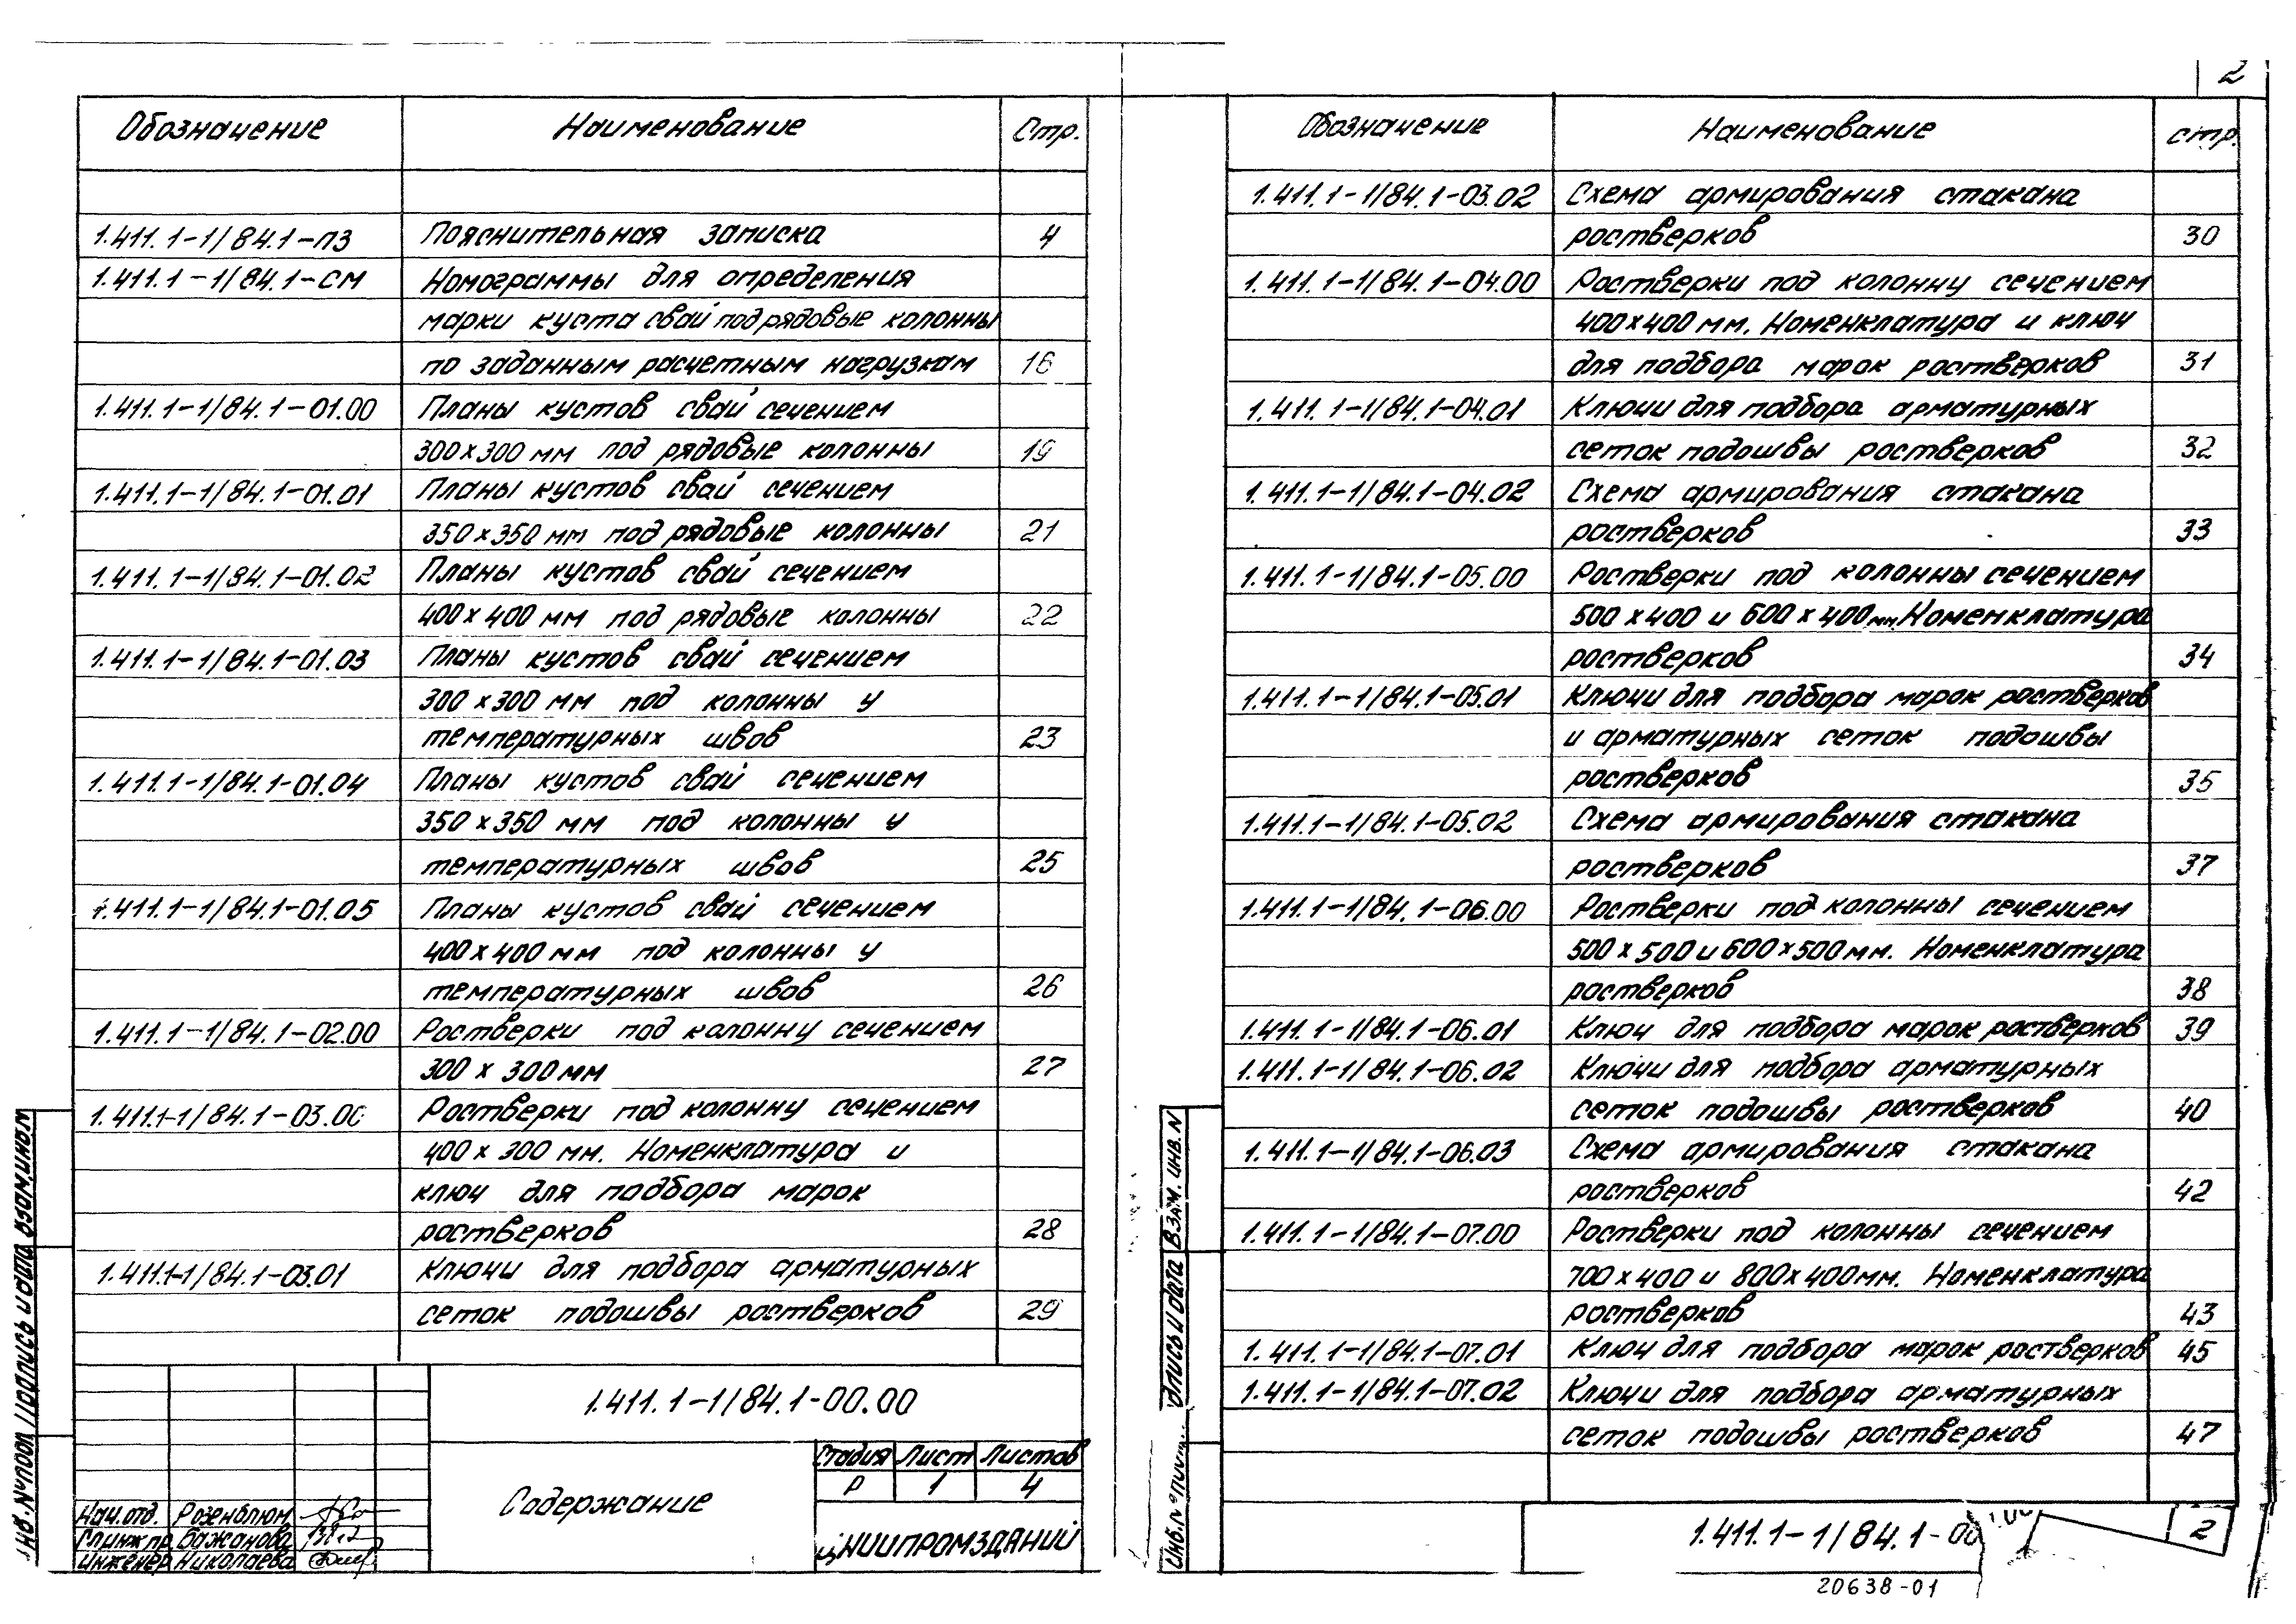 2
Обозначение Наименование Стр.
1.411.1-1/84.1-ПЗ Пояснительная записка 4
1.411.1-1/84.1-СМ Номограммы для определения
марки куста свай под рядовые колонны
по заданным расчетным нагрузкам 16
1.411.1-1/84.1-01.00 Планы кустов свай сечением
300х300 мм под рядовые колонны 19
1.411.1-1/84.1-01.01 Планы кустов свай сечением
350х350 мм под рядовые колонны 21
1.411.1-1/84.1-01.02 Планы кустов свай сечением
400х400 мм под рядовые колонны 22
1.411.1-1/84.1-01.03 Планы кустов свай сечением
300х300 мм под колонны у
температурных швов 23
1.411.1-1/84.1-01.04 Планы кустов свай сечением
350х350 мм под колонны у
температурных швов 25
1.411.1-1/84.1-01.05 Планы кустов свай сечением
400х400 мм под колонны у
температурных швов 26
1.411.1-1/84.1-02.00 Ростверки под колонну сечением
300 х 300 мм 27
1.411.1-1/84.1-03.00 Ростверки под колонну сечением
400 х 300 мм. Номенклатура и
ключ для подбора марок
ростверков 28
1.411.1-1/84.1-03.01 Ключи для подбора арматурных
сеток подошвы ростверков 29
1.411.1-1/84.1-00.00
Содержание
Стадия Лист Листов
Р 1 4
ЦНИИПРОМЗДАНИЙ
Нач.отд. Розенблюм
Гл.инж.пр. Бажанова
Инженер Николаева
Инв. № подл. Подпись и дата Взам.инв.№
Обозначение Наименование стр.
1.411.1-1/84.1-03.02 Схема армирования стакана
ростверков 30
1.411.1-1/84.1-04.00 Ростверки под колонну сечением
400х400 мм. Номенклатура и ключ
для подбора марок ростверков 31
1.411.1-1/84.1-04.01 Ключи для подбора арматурных
сеток подошвы ростверков 32
1.411.1-1/84.1-04.02 Схема армирования стакана
ростверков 33
1.411.1-1/84.1-05.00 Ростверки под колонны сечением
500 х 400 и 600 х 400 мм. Номенклатура
ростверков 34
1.411.1-1/84.1-05.01 Ключи для подбора марок ростверков
и арматурных сеток подошвы
ростверков 35
1.411.1-1/84.1-05.02 Схема армирования стакана
ростверков 37
1.411.1-1/84.1-06.00 Ростверки под колонны сечением
500 х 500 и 600 х 500 мм. Номенклатура
ростверков 38
1.411.1-1/84.1-06.01 Ключ для подбора марок ростверков 39
1.411.1-1/84.1-06.02 Ключи для подбора арматурных
сеток подошвы ростверков 40
1.411.1-1/84.1-06.03 Схема армирования стакана
ростверков 42
1.411.1-1/84.1-07.00 Ростверки под колонны сечением
700 х 400 и 800х400 мм. Номенклатура
ростверков 43
1.411.1-1/84.1-07.01 Ключ для подбора марок ростверков 45
1.411.1-1/84.1-07.02 Ключи для подбора арматурных
сеток подошвы ростверков 47
1.411.1-1/84.1-00 2
20638-01
Инв. № дпись и дата Взам. инв. N